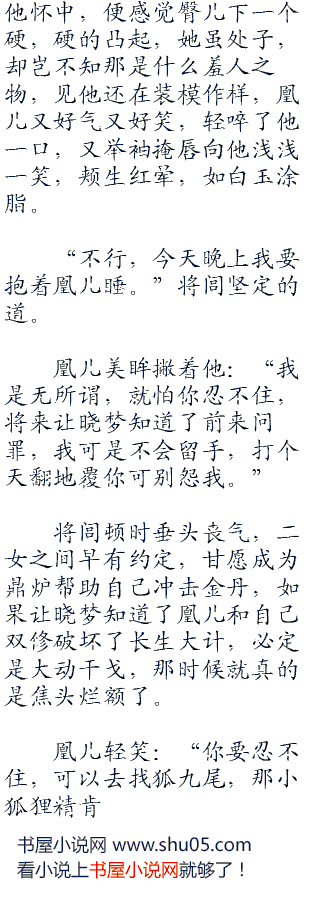 他怀中，便感觉臀儿下一个
硬，硬的凸起，她虽处子，
却岂不知那是什么羞人之
物，见他还在装模作样，凰
儿又好气又好笑，轻啐了他
一口，又举袖掩唇向他浅浅
一笑，颊生红晕，如白玉涂
脂。
“不行，今天晚上我要
抱着凰儿睡。”将闾坚定的
道。
凰儿美眸撇着他：“我
是无所谓，就怕你忍不住，
将来让晓梦知道了前来问
罪，我可是不会留手，打个
天翻地覆你可别怨我。”
将闾顿时垂头丧气，二
女之间早有约定，甘愿成为
鼎炉帮助自己冲击金丹，如
果让晓梦知道了凰儿和自己
双修破坏了长生大计，必定
是大动干戈，那时候就真的
是焦头烂额了。
凰儿轻笑：“你要忍不
住，可以去找狐九尾，那小
狐狸精肯
书屋小说网 www.shu05.com
看小说上书屋小说网就够了！